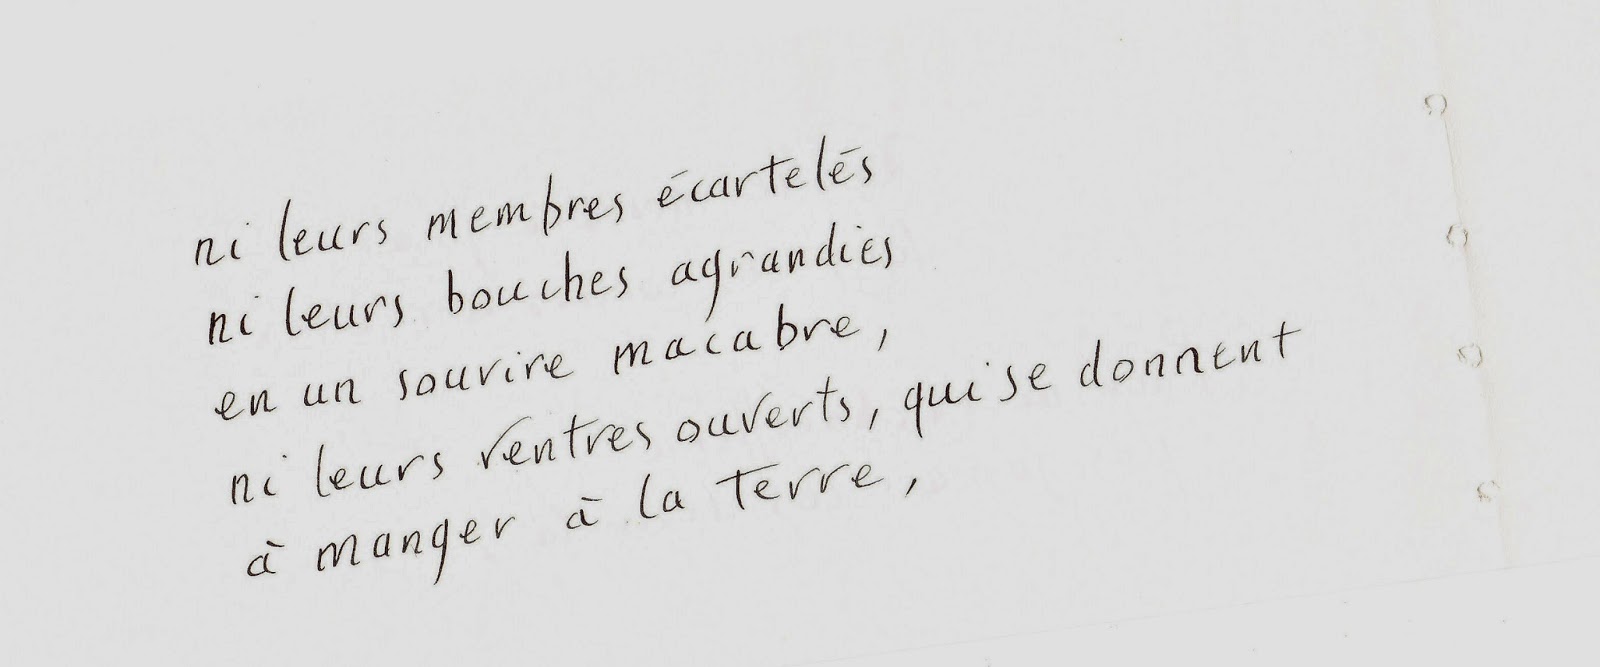 ni leurs membres écartelés
ni leurs bouches agrandies
en un sourire macabre,
ni leurs ventres ouverts, qui se donnent
à manger à la terre,